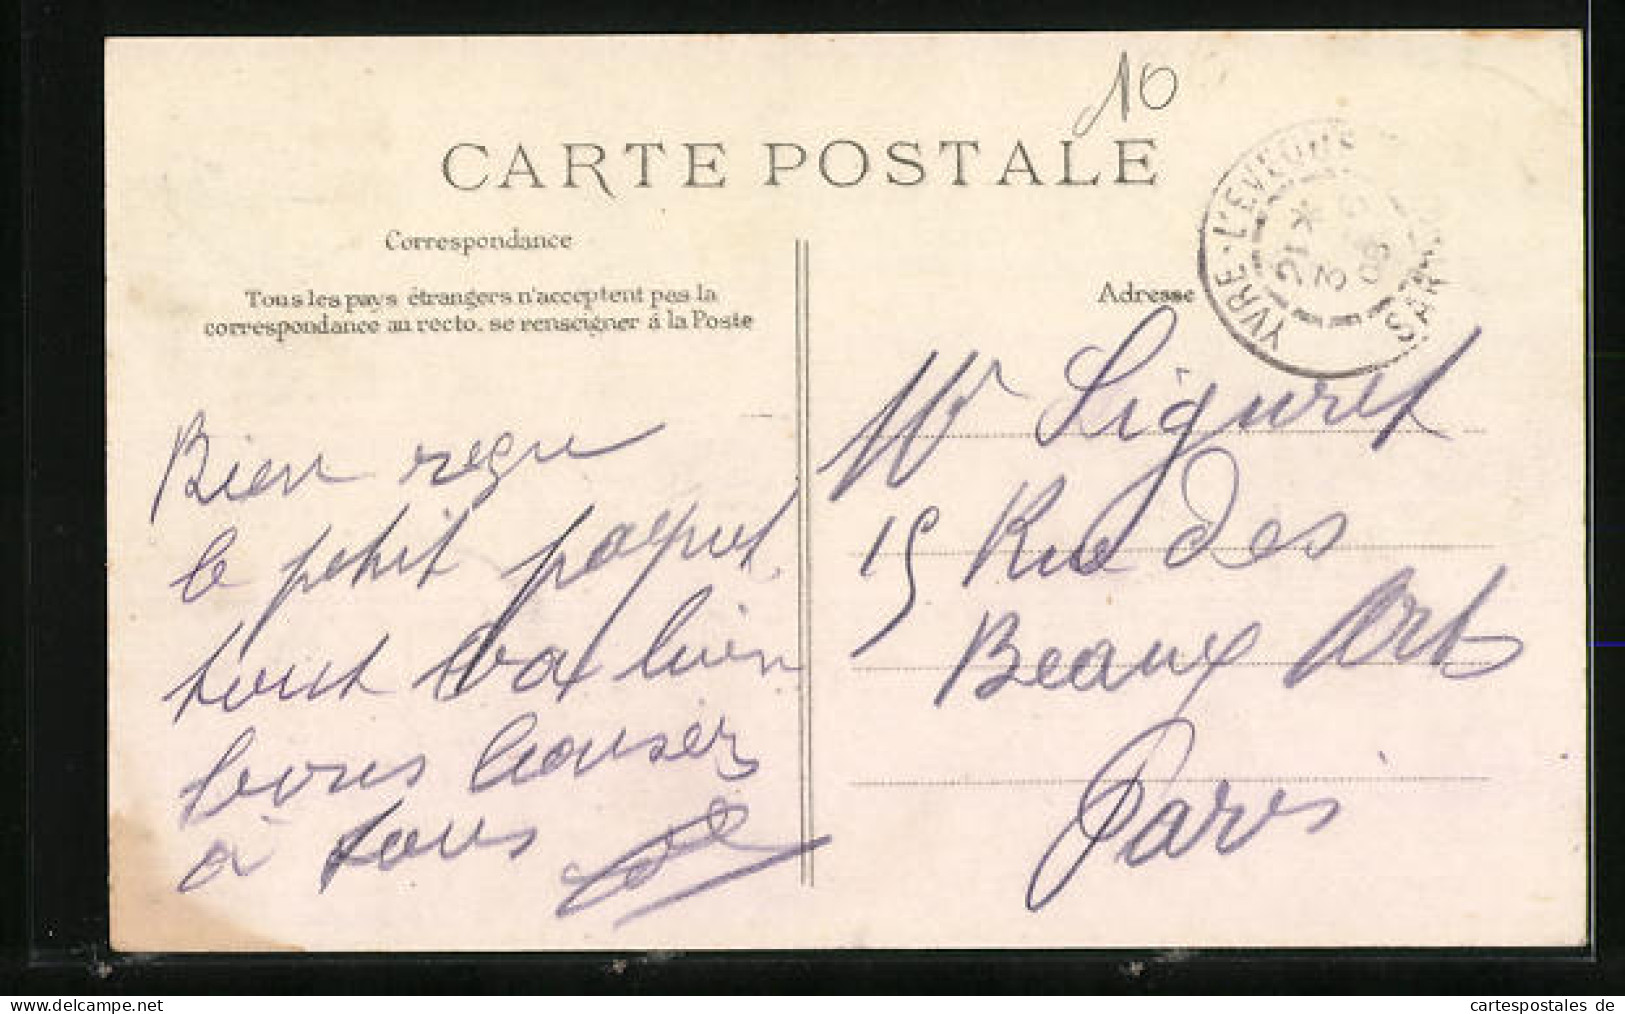 10
CARTE POSTALE
YVRE-L'EVEQUE
SARTHE
21 3 08
Correspondance
Tous les pays étrangers n'acceptent pas la
correspondance au recto. se renseigner à la Poste
Bien reçu
le petit paquet
tout va bien
bons baisers
à tous
Adresse
Mr Liguret
15 Rue des
Beaux Arts
Paris
oldthing
cartespostales de